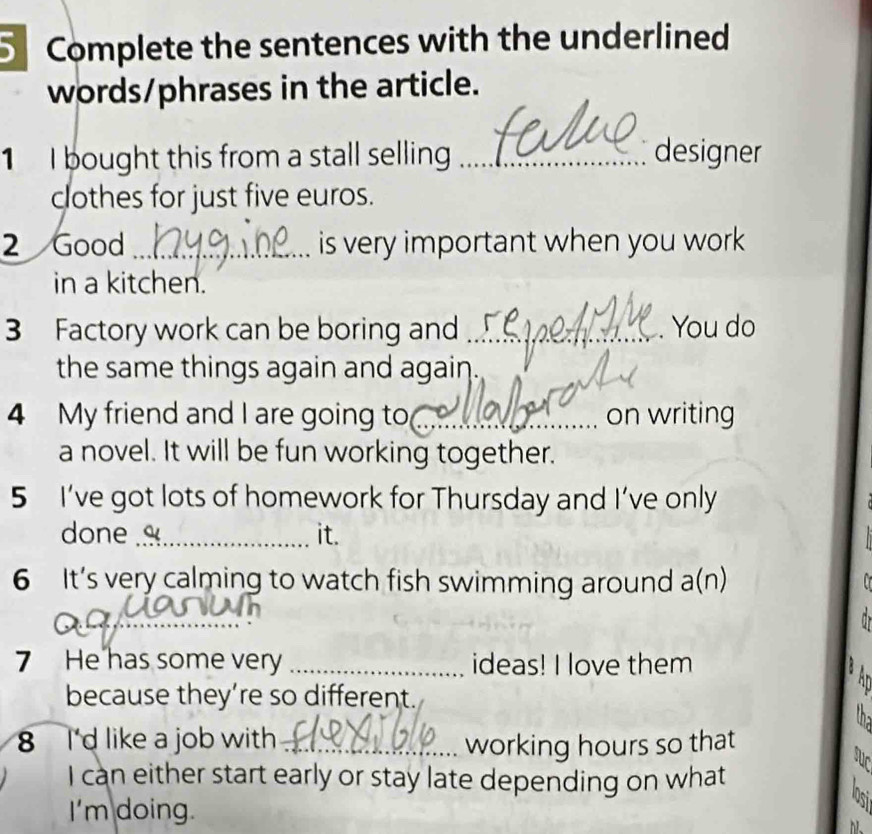 5 Complete the sentences with the underlined
words/phrases in the article.
1 I bought this from a stall selling designer
clothes for just five euros.
2 Good hygine is very important when you work
in a kitchen.
3 Factory work can be boring and repetitive. You do
the same things again and again.
4 My friend and I are going to collaberaty on writing
a novel. It will be fun working together.
5 I've got lots of homework for Thursday and I've only
done a it.
6 It's very calming to watch fish swimming around a(n)
aquarium.
7 He has some very ideas! I love them
because they're so different.
8 I'd like a job with flexible working hours so that
I can either start early or stay late depending on what
I'm doing.